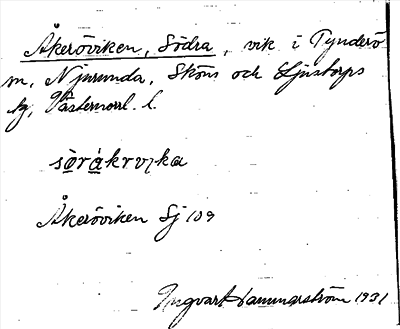 Åkeröviken, Södra, vik i Tynderö
m, Njurunda, Sköns och Ljustorps
tg, Västernorrl. l.
Åkeröviken Sj 109
Ingvar Hammarström 1931